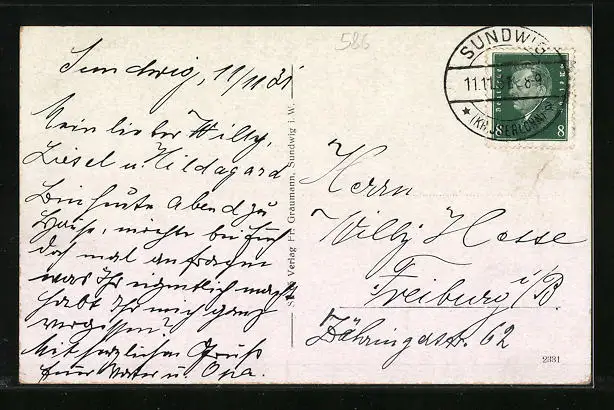 586
Sundwig, 11/11 31
Mein lieber Willy,
Liesel u Hildagard
Bin heute Abend zu
Hause, möchte bei Euch
doch mal anfragen
was Ihr eigentlich macht
habt Ihr mich ganz
vergessen?
Mit herzlichem Gruß
Euer Vater u. Opa.
Verlag Fr. Graumann, Sundwig i. W.
SUNDWIG
11.11. 8-9
a
(KR. ISERLOHN)
Deutsches Reich
8 8
Herrn
Willy Hesse
Freiburg i/B.
Zähringerstr. 62
2331